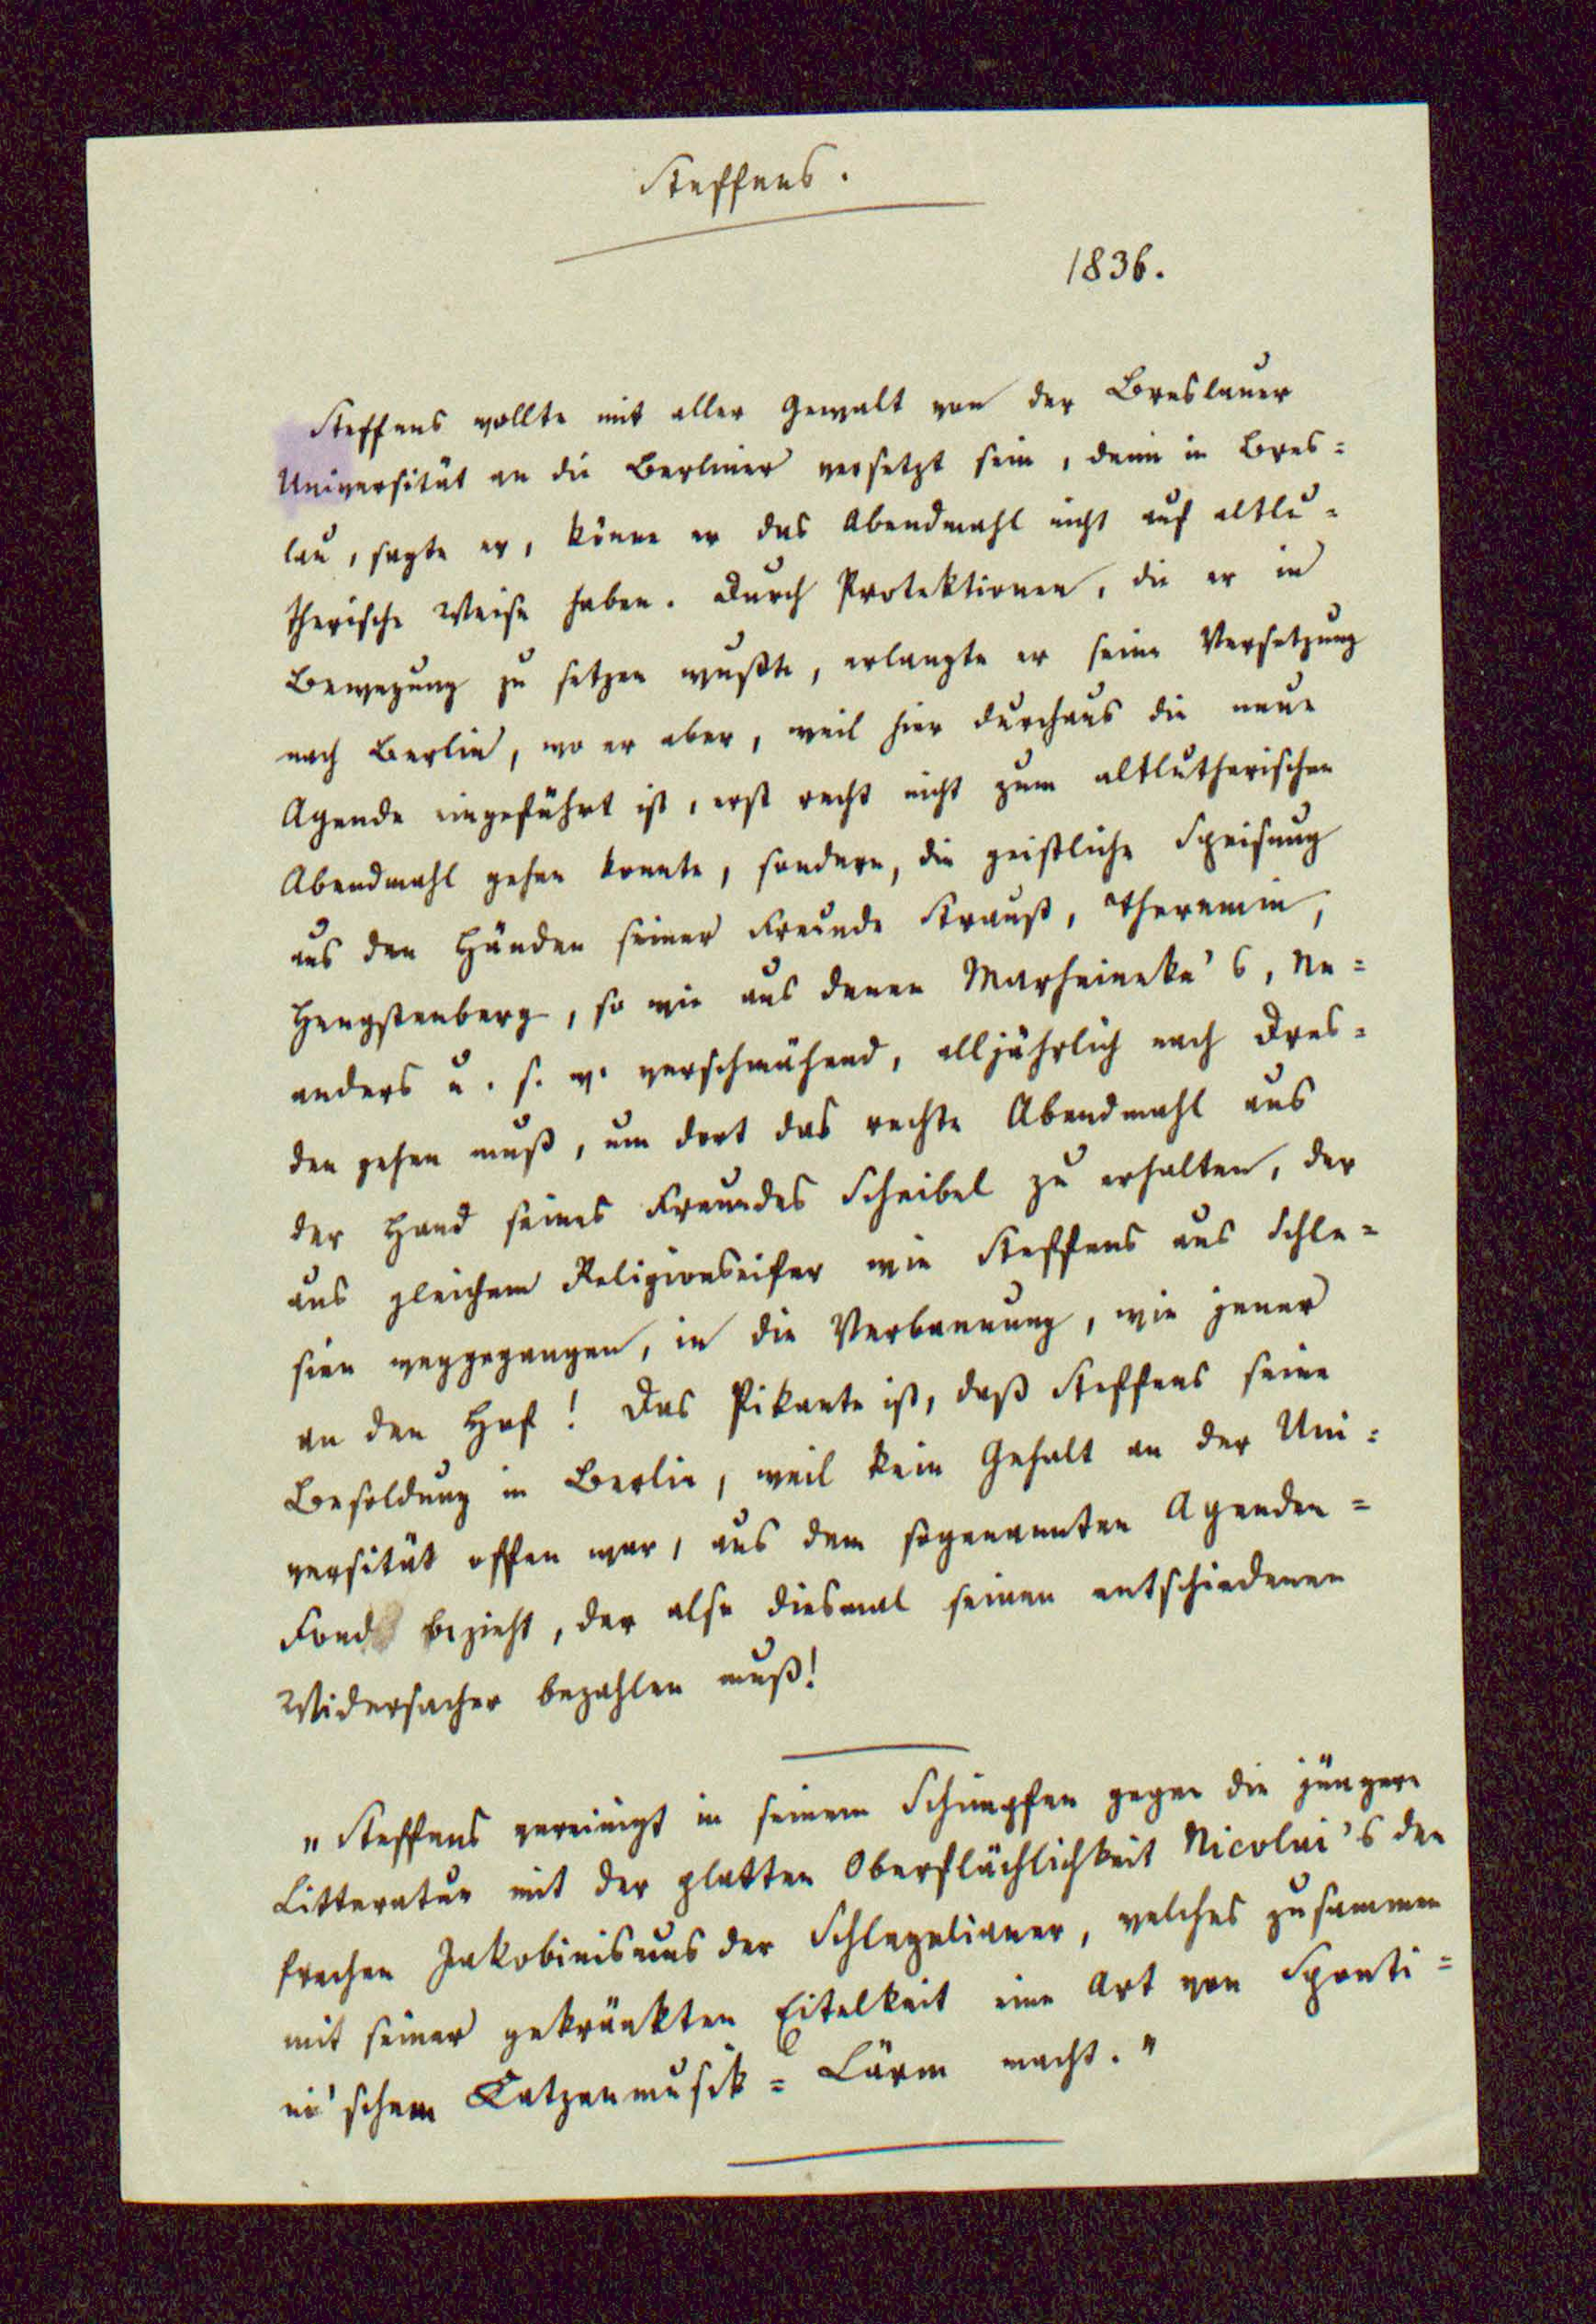 Steffens.
1836.
Steffens wollte mit aller Gewalt von der Breslauer
Universität an die Berliner versetzt sein, denn in Bres=
lau, sagte er, könne er das Abendmahl nicht auf altlu=
therische Weise haben. Durch Protektionen, die er in
Bewegung zu setzen wußte, erlangte er seine Versetzung
nach Berlin, wo er aber, weil hier durchaus die neue
Agende eingeführt ist, erst recht nicht zum altlutherischen
Abendmahl gehen konnte, sondern, die geistliche Speisung
aus den Händen seiner Freunde Strauß, Theremin,
Hengstenberg, so wie aus denen Marheineke's, Ne=
anders u. s. w. verschmähend, alljährlich nach Dres=
den gehen muß, um dort das rechte Abendmahl aus
der Hand seines Freundes Scheibel zu erhalten, der
aus gleichem Religionseifer wie Steffens aus Schle=
sien weggegangen, in die Verbannung, wie jener
an den Hof! Das Pikante ist, daß Steffens seine
Besoldung in Berlin, weil kein Gehalt an der Uni=
versität offen war, aus dem sogenannten Agenden=
Fond bezieht, der also diesmal seinen entschiedenen
Widersacher bezahlen muß!
"Steffens vereinigt in seinem Schimpfen gegen die jüngere
Litteratur mit der platten Oberflächlichkeit Nicolai's den
frechen Jakobinismus der Schlegelianer, welches zusammen
mit seiner gekränkten Eitelkeit eine Art von Sponti=
ni'schem Katzenmusik=Lärm macht."